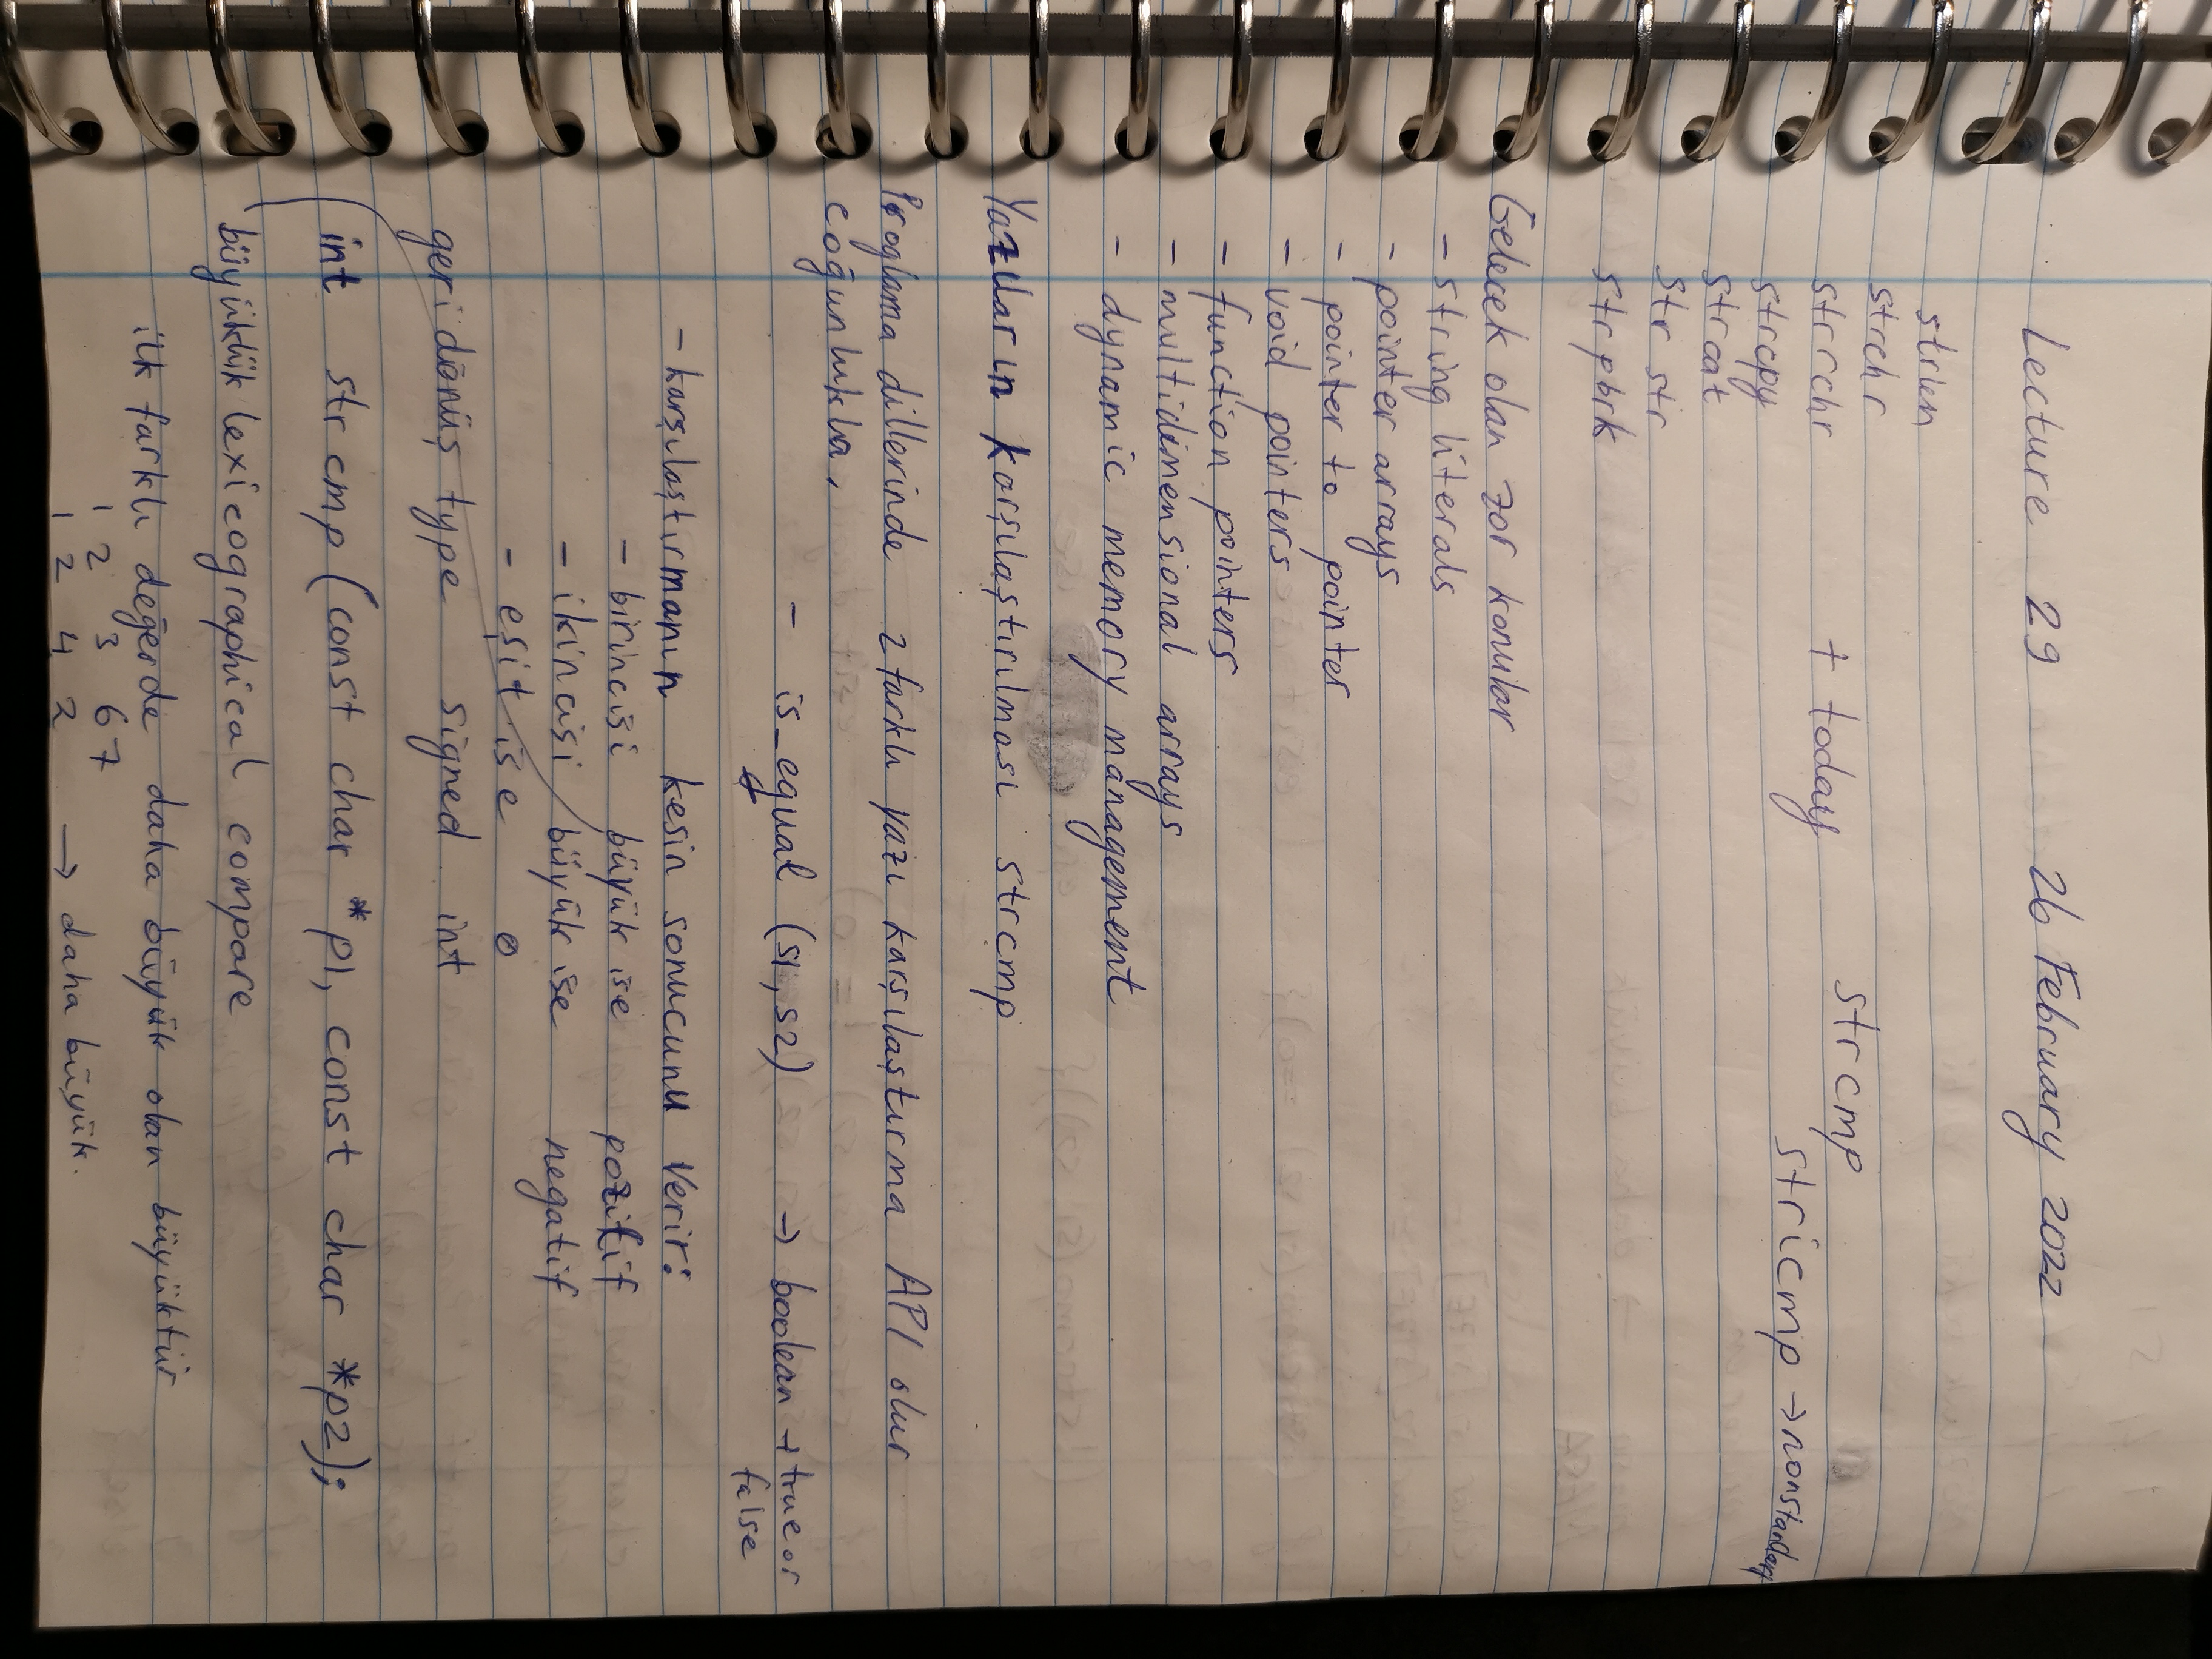 Lecture 29 26 February 2022
strlen
strchr
strrchr + today strcmp
stricmp → nonstandart
strcpy
strcat
str str
strpbrk
Gelecek olan zor konular
- string literals
- pointer arrays
- pointer to pointer
- void pointers
- function pointers
- multidimensional arrays
- dynamic memory management
Yazıların karşılaştırılması strcmp
Proglama dillerinde 2 farklı yazı karşılaştırma API olur
coğunlukla.
- is_equal (s1, s2) → boolean → true or
false
- karşılaştırmanın kesin sonucunu verir:
- birincisi büyük ise pozitif
- ikincisi büyük ise negatif
- eşit ise 0
geri dönüş type signed int
int strcmp (const char *p1, const char *p2);
büyüklük lexicographical compare
ilk farklı değerde daha büyük olan büyüktür
1 2 3 67
1 2 4 2 → daha büyük.